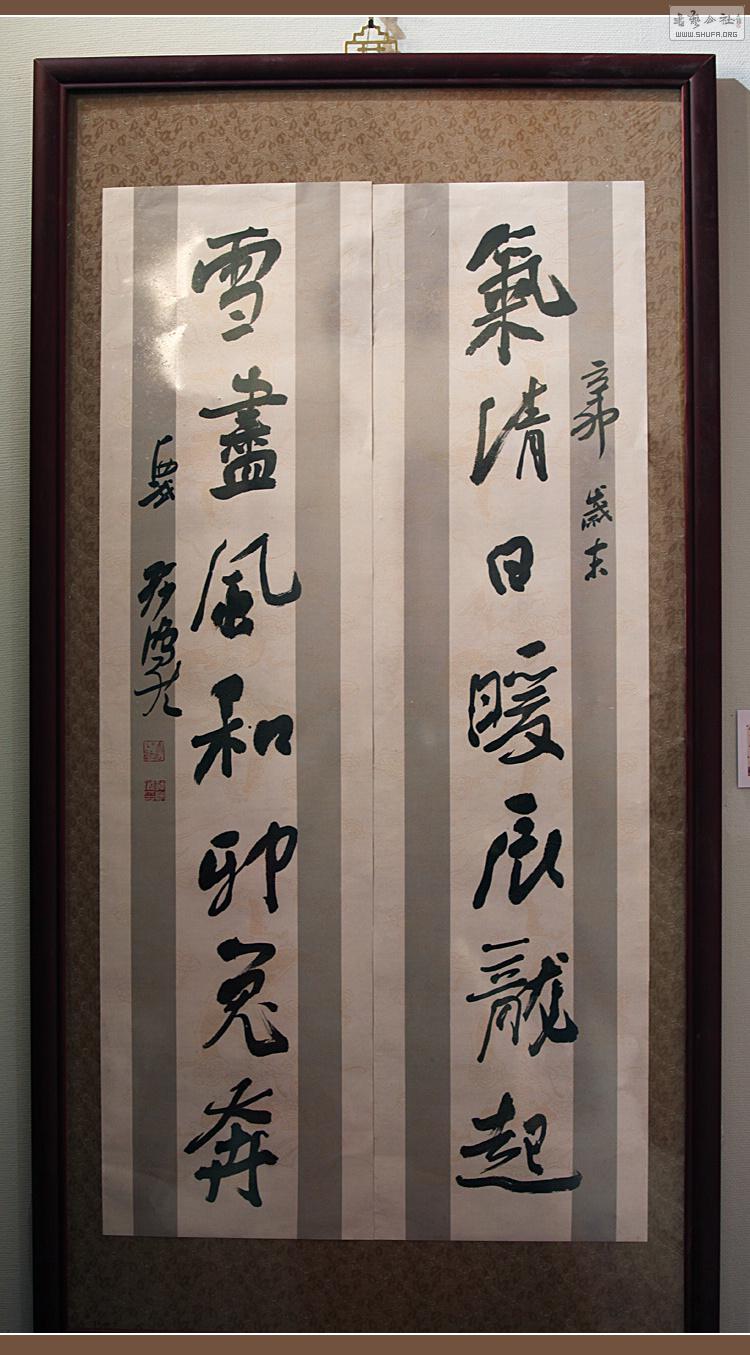 氣清日暖辰龍起
辛卯 歲末
雪盡風和卯兔奔
書藝公社
WWW.SHUFA.ORG